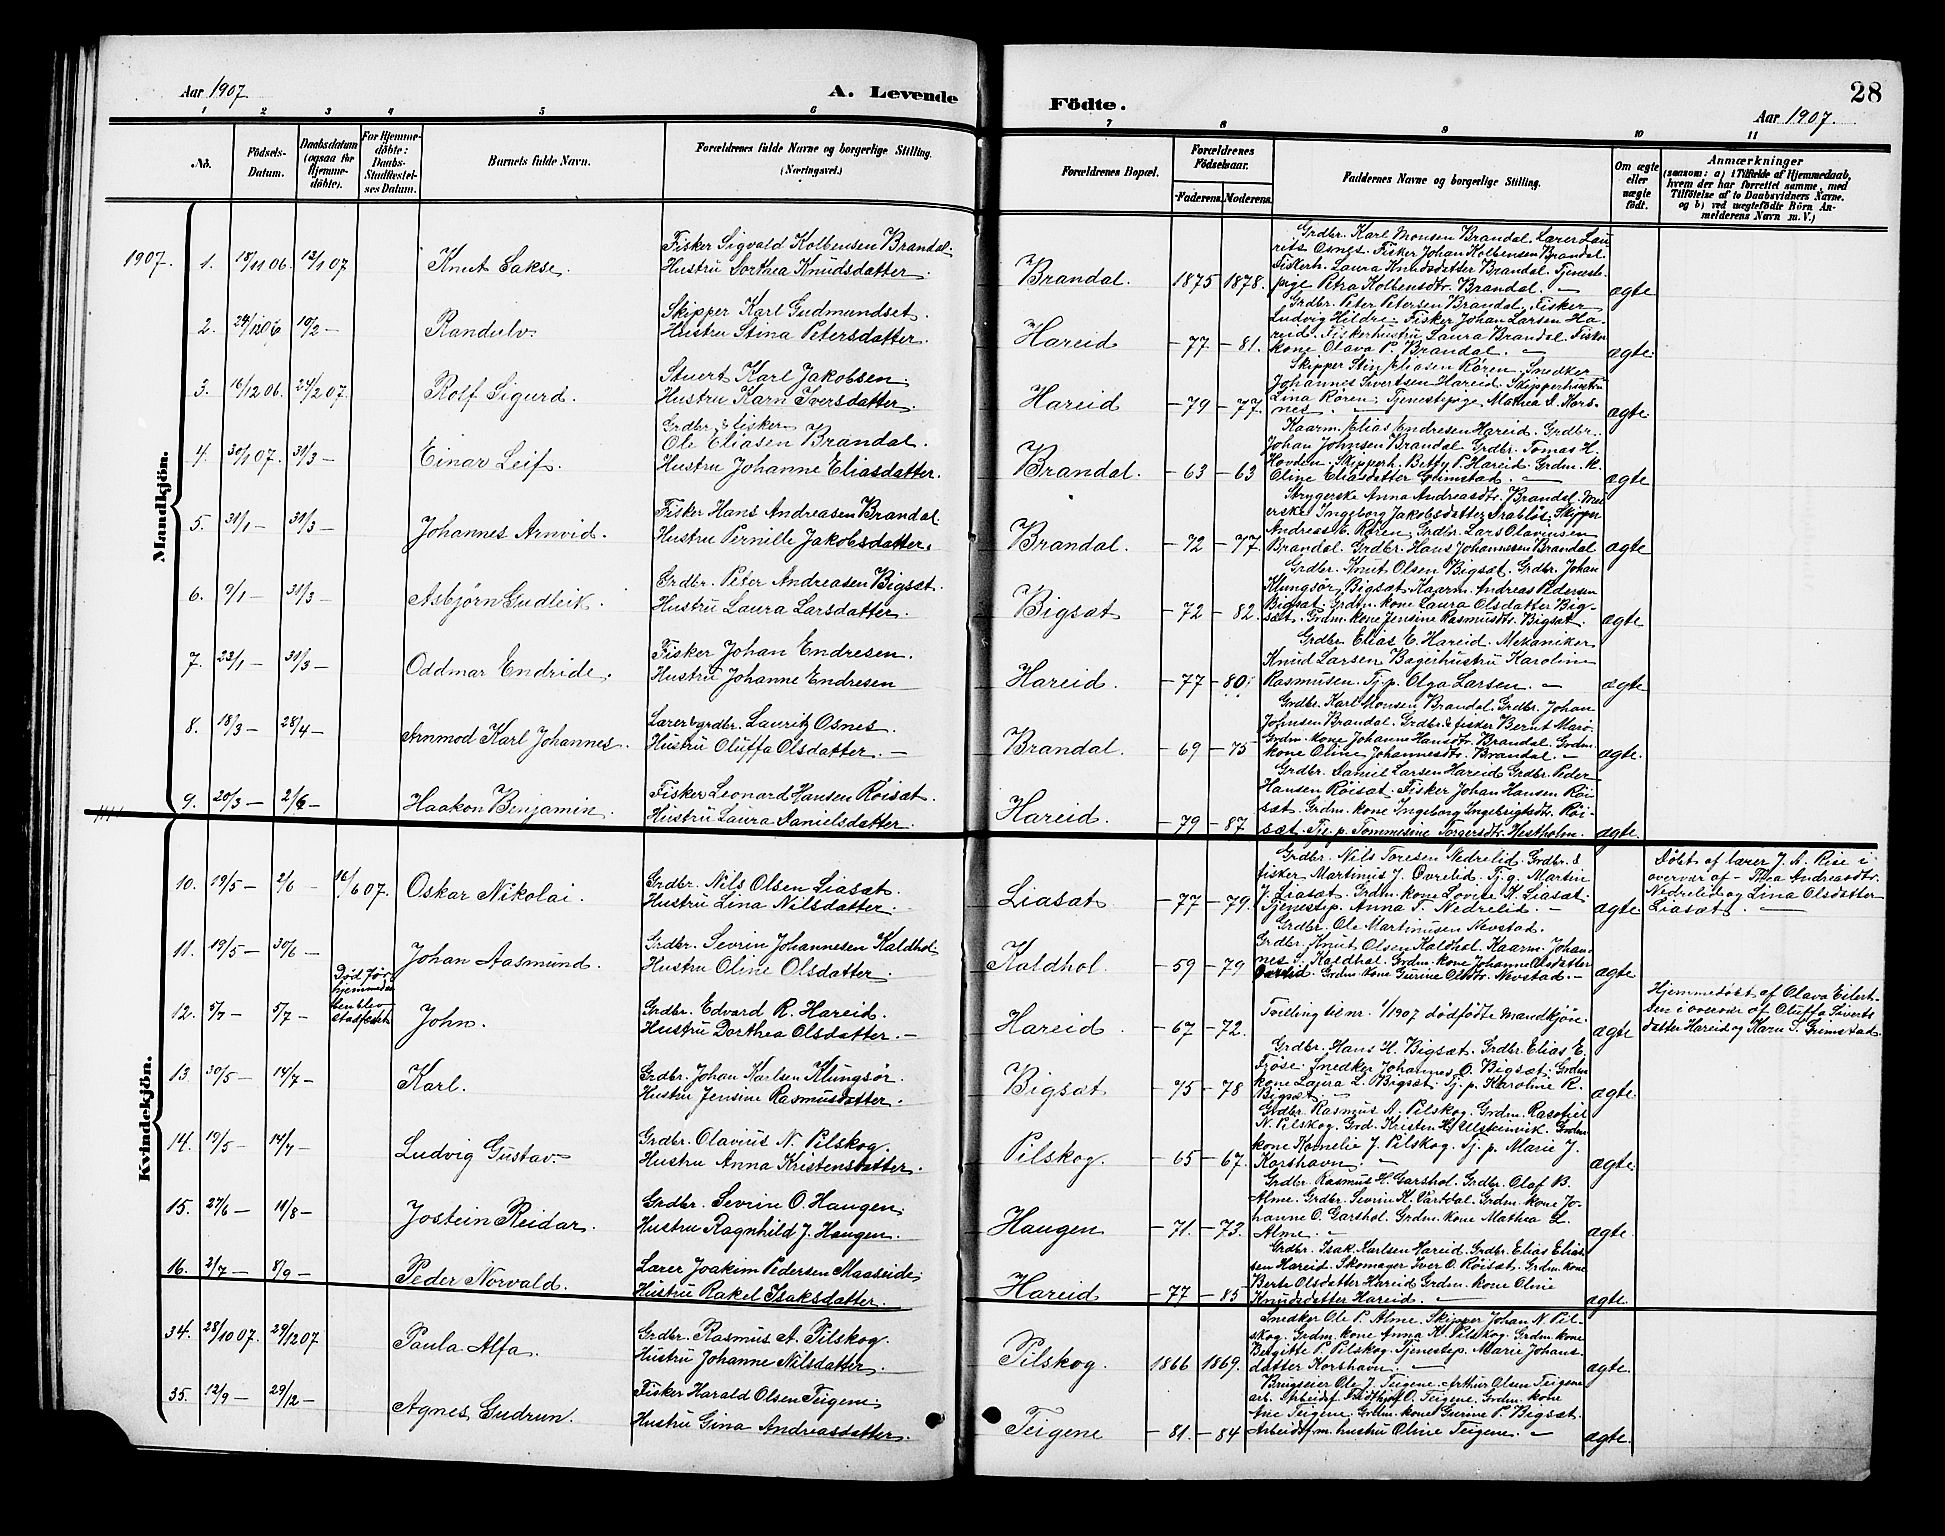 Aar 1907.
A. Levende
Födte.
28
Aar 1907.
1 2 3 4 5 6 7 8 9 10 11
No.
Födsels-
Datum.
Daabsdatum
(ogsaa for
Hjemme-
döbte).
For Hjemme-
döbte:
Daabs-
Stadfæstel-
ses Datum.
Barnets fulde Navn.
Forældrenes fulde Navne og borgerlige Stilling.
(Næringsvei.)
Forældrenes Bopæl.
Forældrenes
Födselsaar.
Faderens. Moderens.
Faddernes Navne og borgerlige Stilling.
Om ægte
eller
uægte
födt.
Anmærkninger
(saasom: a) i Tilfælde af Hjemmedaab,
hvem der har forrettet samme, med
Tilföielse af to Daabsvidners Navne,
og b) ved uægtefödte Börn An-
melderens Navn m. V.)
Mandkjön.
1907. 1. 18/11 06. 12/1 07 Knut Sakse.
Fisker Sigvald Kolbensen Brandal.
Hustru Dorthea Knudsdatter.
Brandal. 1875 1878.
Grdbr. Karl Monsen Brandal. Lærer Lau-
rits Osnes. Fisker Johan Kolbensen Brandal.
Fiskerh. Laura Knudsdatter Brandal. Tjeneste-
pige Petra Kolbensdtr. Brandal. —
ægte
2. 24/12 06 10/2 — Randulv.
Skipper Karl Gudmundset.
Hustru Stina Petersdatter.
Hareid — 77 — 81.
Grdbr. Peter Petersen Brandal. Fisker
Ludvig Hildre. Fisker Johan Larsen Ha-
reid. Fiskerhustru Laura Brandal. Fisker-
kone Olava P. Brandal. —
ægte.
3. 16/12 06. 24/2 07. Rolf Sigurd.
Stuert Karl Jakobsen
Hustru Karn Iversdatter.
Hareid — 79 — 77.
Skipper Stin Eliasen Røren, Snedker
Johannes Sivertsen Hareid. Skipperhustru
Lina Røren. Tjenestepige Mathea S. Kors-
nes. —
ægte
4. 30/1 07. 31/3 — Einar Leif.
Grdbr. & fisker
Ole Eliasen Brandal.
Hustru Johanne Eliasdatter.
Brandal. — 63 — 63
Kaarm. Elias Endresen Hareid. Grdbr.
Johan Johnsen Brandal Grdbr. Tomas H.
Hovden. Skipperh. Betty P. Hareid. Grdm. k.
Oline Eliasdatter Grimstad. —
ægte
5. 31/1 — 31/3 — Johannes Arnvid.
Fisker Hans Andreasen Brandal
Hustru Pernille Jakobsdatter.
Brandal. — 72 — 77
Strygerske Anna Andreasdtr. Brandal. Mei-
erske Ingeborg Jakobsdatter Drabløs. Skipper
Andreas E. Røren. Grdbr. Lars Olavinsen
Brandal. Grdbr. Hans Johannesen Brandal
ægte
6. 9/1 — 31/3 — Asbjørn Gudleik.
Grdbr. Peter Andreasen Bigsæt.
Hustru Laura Larsdatter.
Bigsæt — 72 — 82.
Grdbr. Knut Olsen Bigsæt. Grdbr. Johan
Klungsør, Bigsæt. Kaarm. Andreas Pedersen
Bigsæt. Grdm. kone Laura Olsdatter Big-
sæt. Grdm. kone Jensine Rasmusdtr. Bigsæt.
ægte
7. 23/1 — 31/3 — Oddmar Endride.
Fisker Johan Endresen.
Hustru Johanne Endresen
Hareid. — 77 — 80.
Grdbr. Elias E. Hareid. Mekaniker
Knud Larsen. Bagerhustru Karoline
Rasmusen. Tj. p. Olga Larsen. —
ægte
8. 18/3 — 28/4 — Arnmod Karl Johannes.
Lærer & grdbr. Lauritz Osnes.
Hustru Oluffa Olsdatter. —
Brandal. — 69 — 75
Grdbr. Karl Monsen Brandal. Grdbr. Johan
Johnsen Brandal. Grdbr. & fisker Bernt Marø.
Grdm. kone Johanne Hansdtr. Brandal. Grdm.
kone Oline Johannesdtr. Brandal. —
ægte.
9. 20/3 — 2/6 — Haakon Benjamin.
Fisker Leonard Hansen Røisæt.
Hustru Laura Danielsdatter.
Hareid. — 79 — 87
Grdbr. Daniel Larsen Hareid Grdbr. Peder
Hansen Røisæt. Fisker Johan Hansen Røi-
sæt. Grdm. kone Ingeborg Ingebrigtsdtr. Røi-
sæt. Tj. p. Tommesine Torgersdtr. Hestholm.
ægte.
Kvindekjön.
10. 19/5 — 2/6 — 16/6 07. Oskar Nikolai.
Grdbr. Nils Olsen Liasæt.
Hustru Lina Nilsdatter.
Liasæt — 77 — 79.
Grdbr. Nils Toresen Nedrelid. Grdbr. &
fisker Martinus J. Øvrelid. Tj. g. Martin
J. Liasæt. Grdm. kone Lovise K. Liasæt.
Tjenestep. Anna T. Nedrelid. —
ægte
Døbt af lærer J. A. Rise i
overvær af — Thea Andreasdtr.
Nedrelid og Lina Olsdatter
Liasæt. —
11. 19/5 — 30/6 — Johan Aasmund.
Grdbr. Sevrin Johannesen Kaldhol
Hustru Oline Olsdatter.
Kaldhol. — 59 — 79
Grdbr. Ole Martinusen Nevstad.
Grdbr. Knut Olsen Kaldhol. Kaarm. Johan-
nes S. Kaldhol. Grdm. kone Johanne Olsdatter
Øvrelid Grdm. kone Gurine Olsdtr. Nevstad. —
ægte
12. 5/7 — 5/7 — Død før
hjemmedaa-
ben blev
stadfæstet
John.
Grdbr. Edvard R. Hareid.
Hustru Dorthea Olsdatter. —
Hareid — 67 — 72.
Tvilling til nr. 1/1907 dødfødte mandkjøn.
ægte
Hjemmedøbt af Olava Eilert-
sen i overvær af Oluffa Siverts-
datter Hareid og Karn S. Grimstad.
13 30/5 — 14/7 — Karl.
Grdbr. Johan Karlsen Klungsør.
Hustru Jensine Rasmusdatter.
Bigsæt — 75 — 78
Grdbr. Hans H. Bigsæt. Grdbr. Elias E.
Fjøse. Snedker Johannes O. Bigsæt. Grdm.
kone Laura L. Bigsæt. Tj. p. Karoline R.
Bigsæt —
ægte.
14. 19/5 — 14/7 — Ludvig Gustav.
Grdbr. Olavius N. Pilskog.
Hustru Anna Kristensdatter.
Pilskog. — 65 — 67.
Grdbr. Rasmus A. Pilskog. Grdm. Rasofiel
N. Pilskog. Grd. Kristen H. Ulsteinvik. Grdm.
kone Kornelie J. Pilskog. Tj. p. Marie J.
Korshavn. —
ægte.
15. 27/6 — 11/8 — Jostein Reidar.
Grdbr. Sevrin O. Haugen.
Hustru Ragnhild J. Haugen.
Haugen — 71. — 73.
Grdbr. Rasmus H. Garshol. Grdbr. Olaf B.
Alme. Grdbr. Sevrin K. Vartdal. Grdm. kone Jo-
hanne O. Garshol. Grdm. kone Mathea L.
Alme. —
ægte.
16. 2/7 — 8/9 — Peder Norvald.
Lærer Joakim Pedersen Maaseide.
Hustru Rakel Isaksdatter.
Hareid — 77 — 85
Grdbr. Isak Karlsen Hareid. Grdbr. Elias Elias-
sen Hareid. Skomager Iver O. Røisæt. Grdm. kone
Berte Olsdatter Hareid Grdm. kone Oline
Knudsdatter Hareid. —
ægte.
34. 28/10 07. 29/12 07 Paula Alfa.
Grdbr. Rasmus A. Pilskog.
Hustru Johanne Nilsdatter.
Pilskog. 1866 1869.
Snedker Ole P. Alme. Skipper Johan N. Pil-
skog. Grdm. kone Anna K. Pilskog. Grdm. kone
Bergitte P. Pilskog. Tjenestep. Marie Johans-
datter Korshavn. —
ægte.
35. 12/9 — 29/12 — Agnes Gudrun.
Fisker Harald Olsen Teigene.
Hustru Gina Andreasdatter.
Teigene — 81. — 84
Brugseier Ole J. Teigene. Arthur Olsen Teigene
arb. Arbeidsf. Fridthjof O. Teigene. Grdm. kone
Ane Teigene. Grdm. kone Gurine P. Bigsæt.
Arbeidsf. m. hustru Oline Teigene. —
ægte.